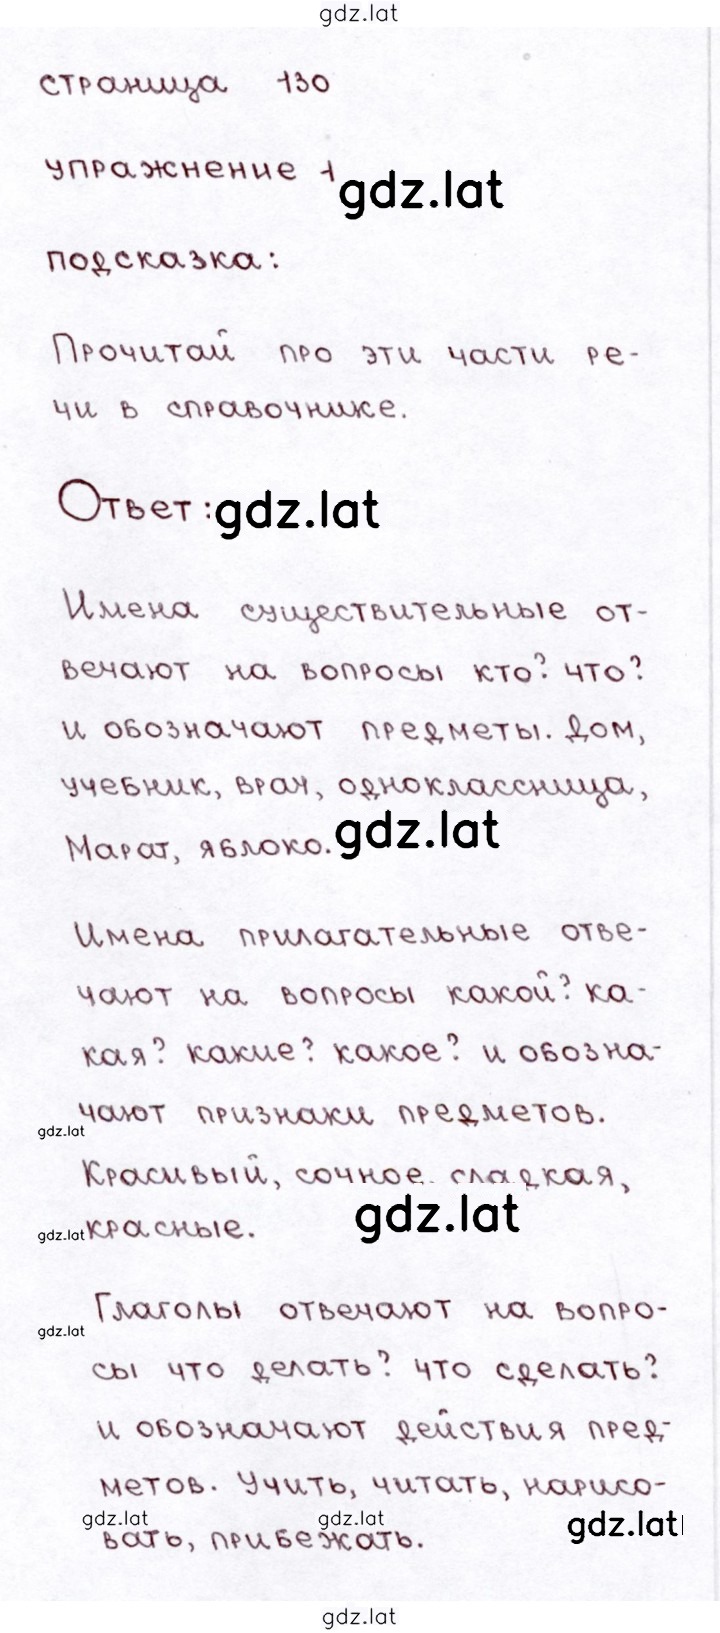 gdz.lat
страница 130
упражнение 1
gdz.lat
подсказка:
Прочитай про эти части ре-
чи в справочнике.
Ответ:
gdz.lat
Имена существительные от-
вечают на вопросы кто? что?
и обозначают предметы. Дом,
учебник, врач, одноклассница,
Марат, яблоко.
gdz.lat
Имена прилагательные отве-
чают на вопросы какой? ка-
кая? какие? какое? и обозна-
чают признаки предметов.
gdz.lat
Красивый, сочное, сладкая,
gdz.lat
красные.
gdz.lat
Глаголы отвечают на вопро-
gdz.lat
сы что делать? что сделать?
и обозначают действия пред-
метов. Учить, читать, нарисо-
gdz.lat gdz.lat gdz.lat
вать, прибежать.
gdz.lat